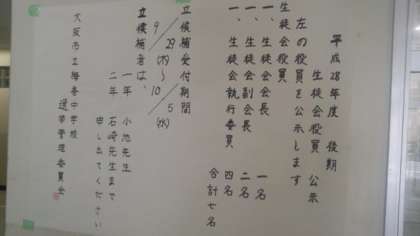 平成28年度 後期
生徒会役員 公示
左の役員を公示します
生徒会役員
一、生徒会会長 一名
一、生徒会副会長 二名
一、生徒会執行委員 四名
合計七名
立候補受付期間
9/29(木)～10/5(水)
立候補者は、
一年 小池先生
二年 石崎先生まで
申し出てください
大阪市立梅香中学校
選挙管理委員会